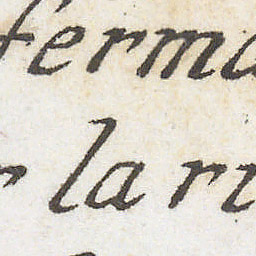 ferma
r la ri